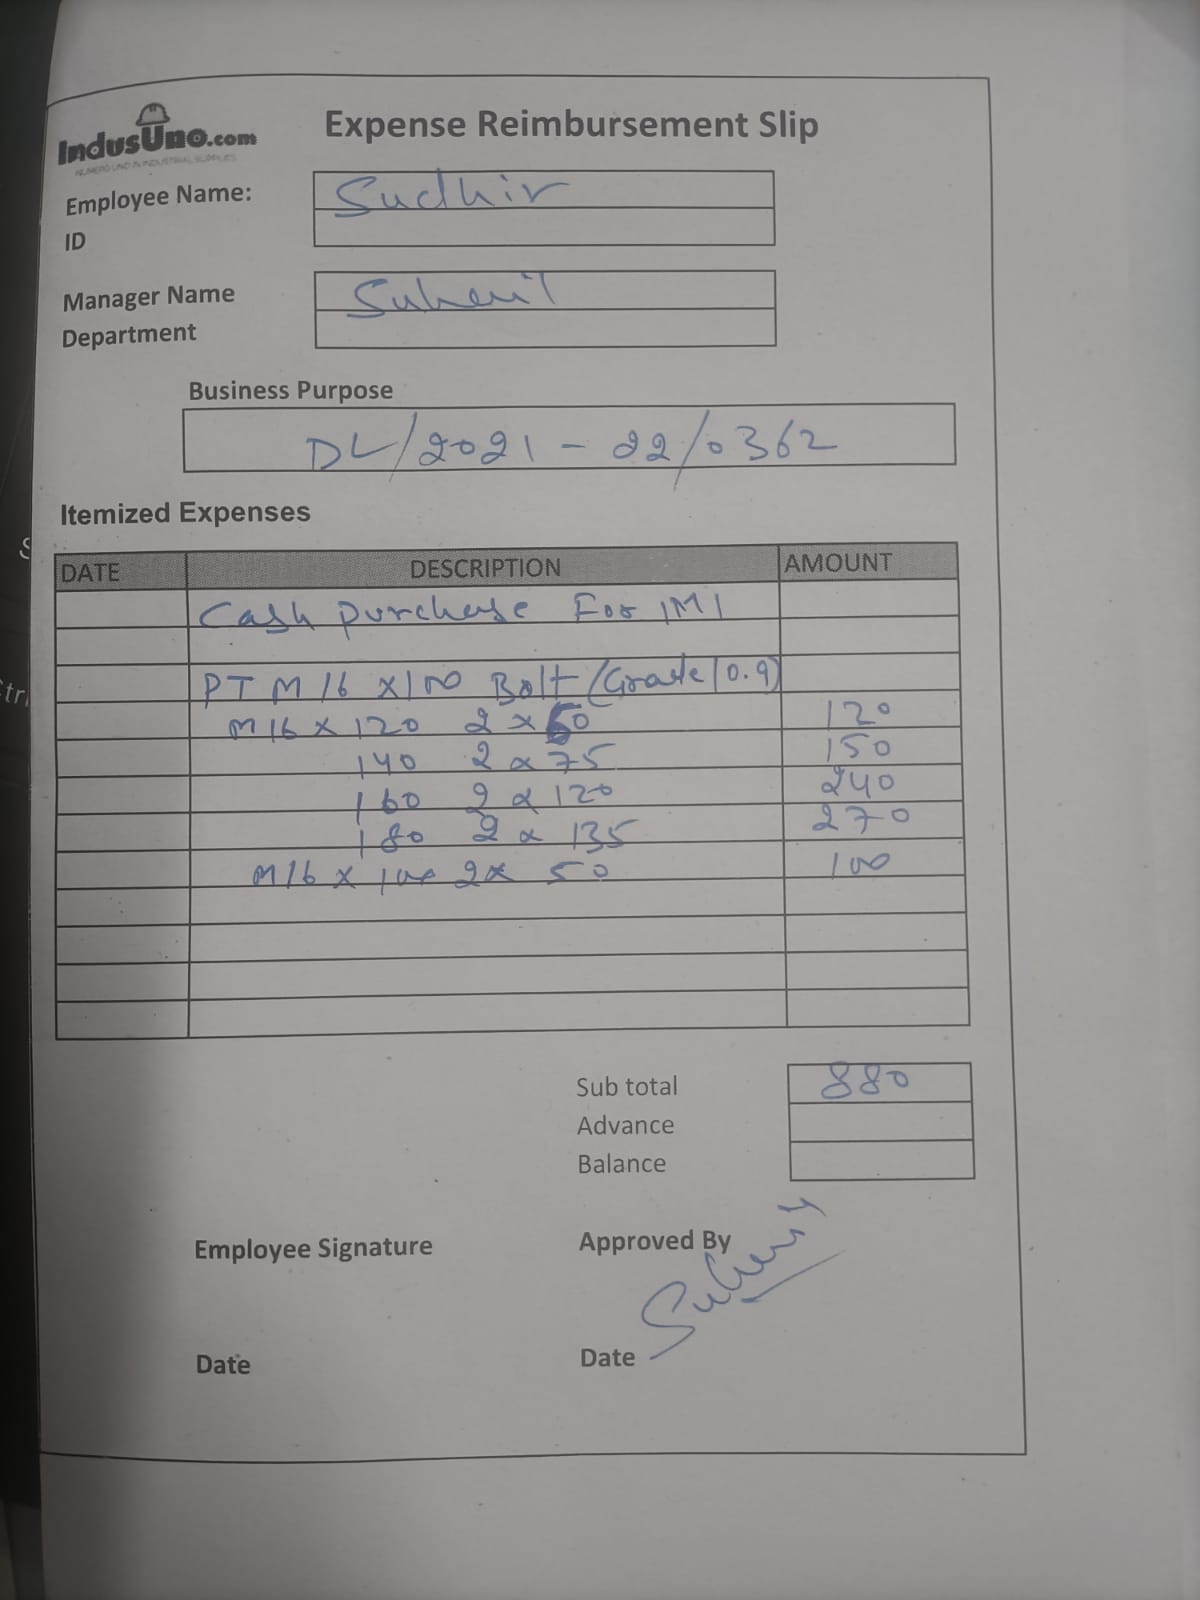 IndusUno.com
NUMERO UNO IN INDUSTRIAL SUPPLIES
Expense Reimbursement Slip
Employee Name: Sudhir
ID
Manager Name Suhenil
Department
Business Purpose
DL/2021-22/0362
Itemized Expenses
DATE DESCRIPTION AMOUNT
Cash purchase For IMI
PTM16 x100 Bolt/(Grade 10.9)
M16 x 120 2 x 60 120
140 2 x 75 150
160 2 x 120 240
180 2 x 135 270
M16 x 100 2x 50 100
Sub total 880
Advance
Balance
Employee Signature Approved By
Date Date